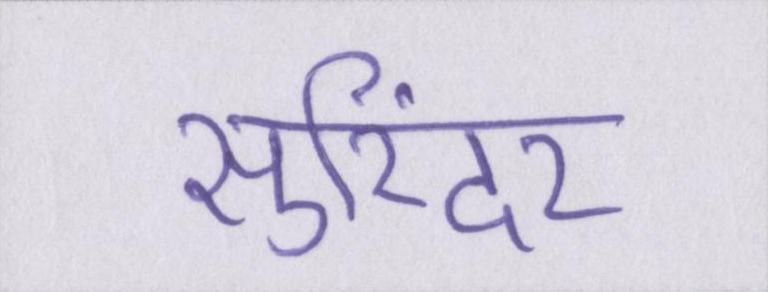 सुरिंदर